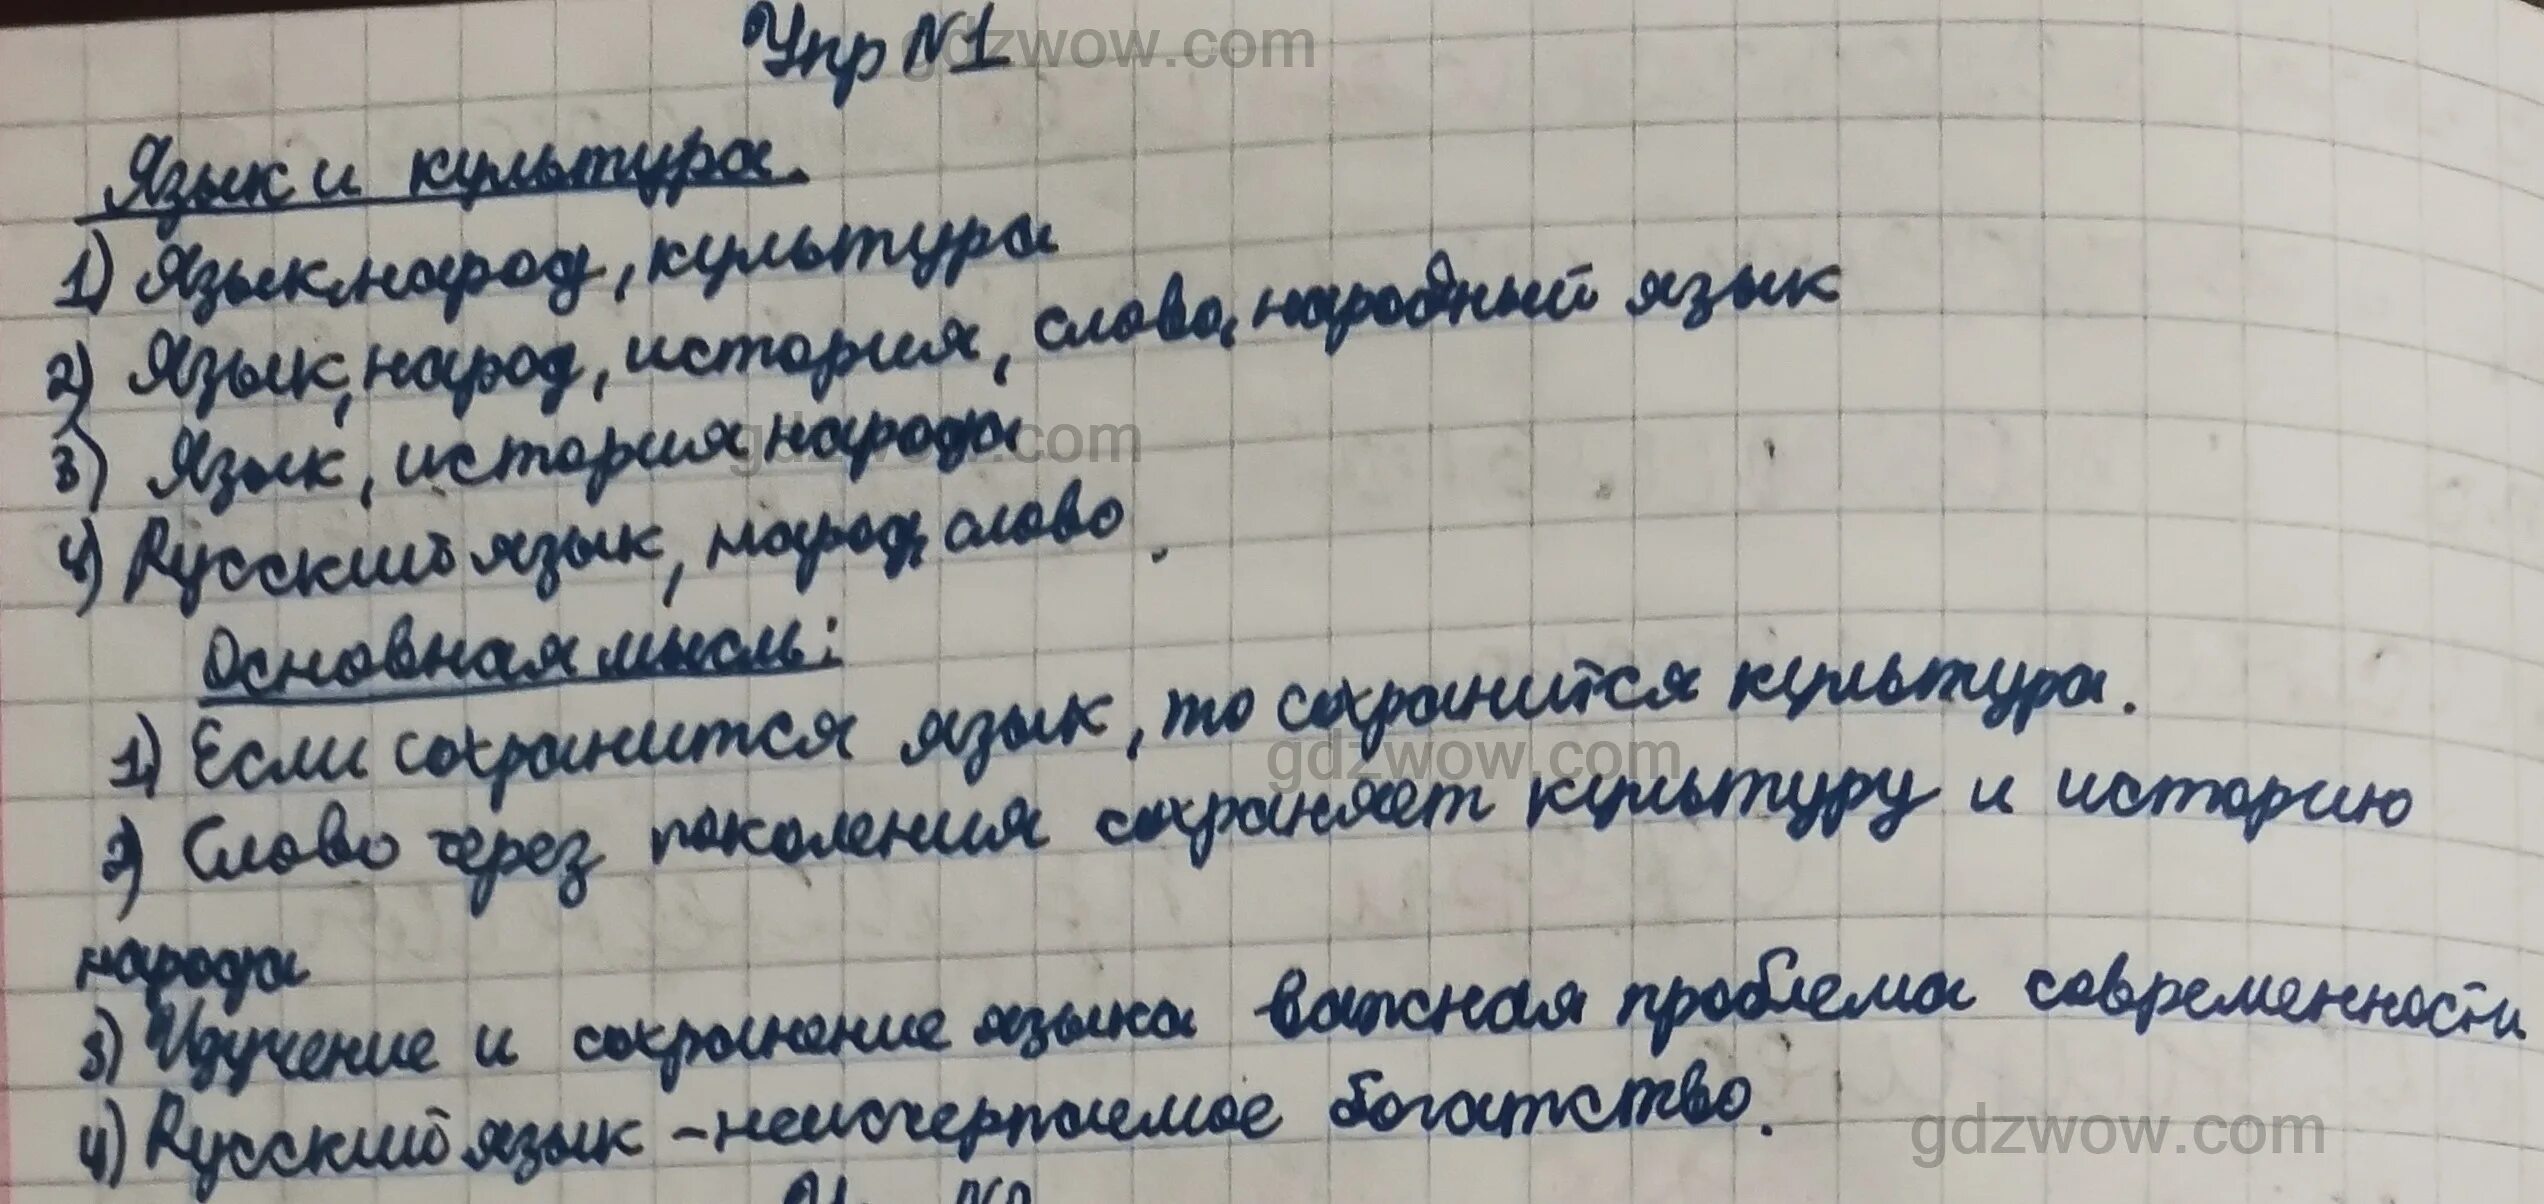 Упр №1
Язык и культура.
1) Язык, народ, культура
2) Язык, народ, история, слово, народный язык
3) Язык, история народа
4) Русский язык, народ, слово.
Основная мысль:
1) Если сохранится язык, то сохранится культура.
2) Слово через поколения сохраняет культуру и историю
народа
3) Изучение и сохранение языка важная проблема современности
4) Русский язык - неисчерпаемое богатство.
gdzwow.com
gdzwow.com
gdzwow.com
gdzwow.com